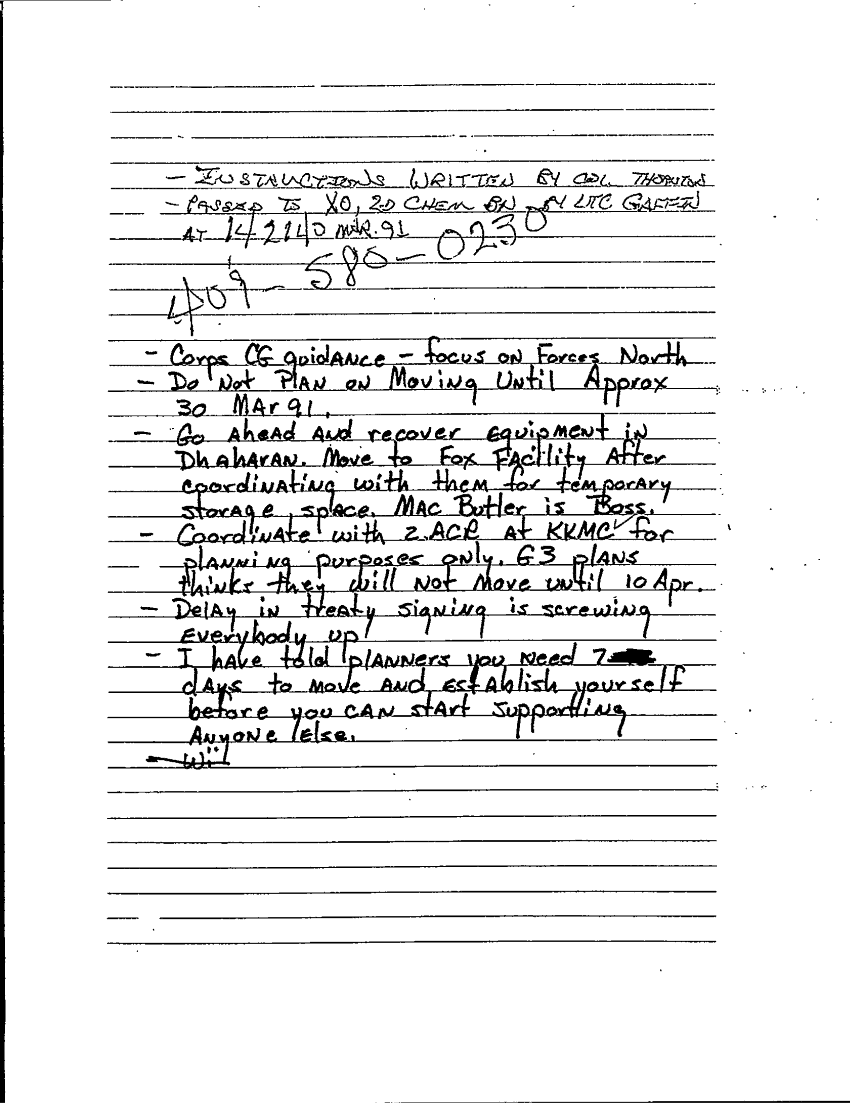 - INSTRUCTIONS WRITTEN BY COL THORNTON
- PASSED TO XO, 2D CHEM BN BY LTC
AT 142140 MAR. 91
409-580-0230
- Corps CG guidance - focus on Forces North
- Do Not Plan on Moving Until Approx
30 Mar 91.
- Go Ahead and recover equipment in
Dhaharan. Move to Fox Facility After
coordinating with them for temporary
storage space. Mac Butler is Boss.
- Coordinate with 2 ACR at KKMC for
planning purposes only. G3 plans
thinks they will Not Move until 10 Apr.
- Delay in treaty signing is screwing
Everybody up!
- I have told planners you need 7
days to move and establish yourself
before you can start supportling
Anyone Else.